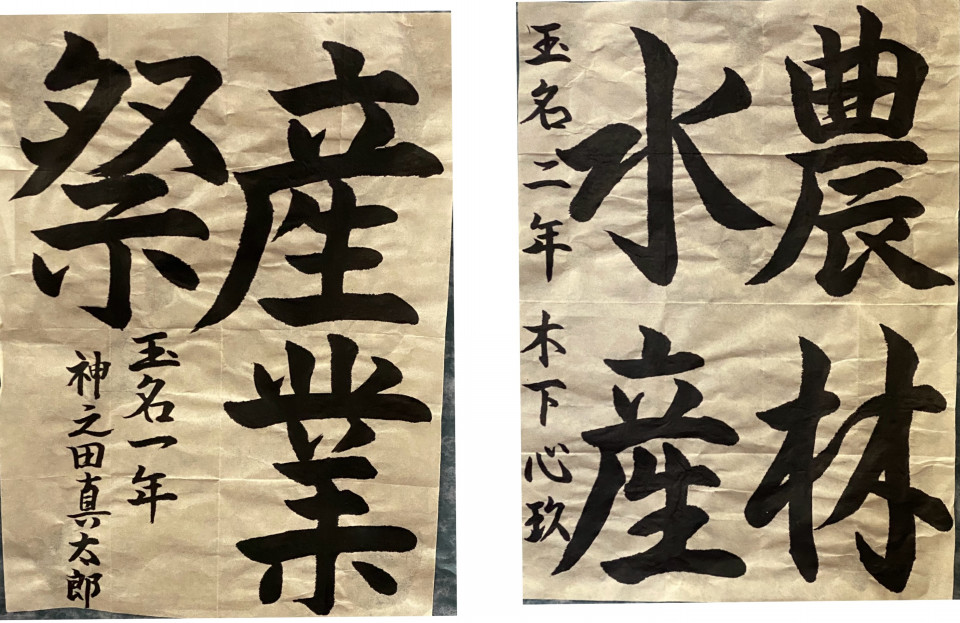 産業
祭
玉名一年
神之田真太郎
農林
水産
玉名二年 木下心玖